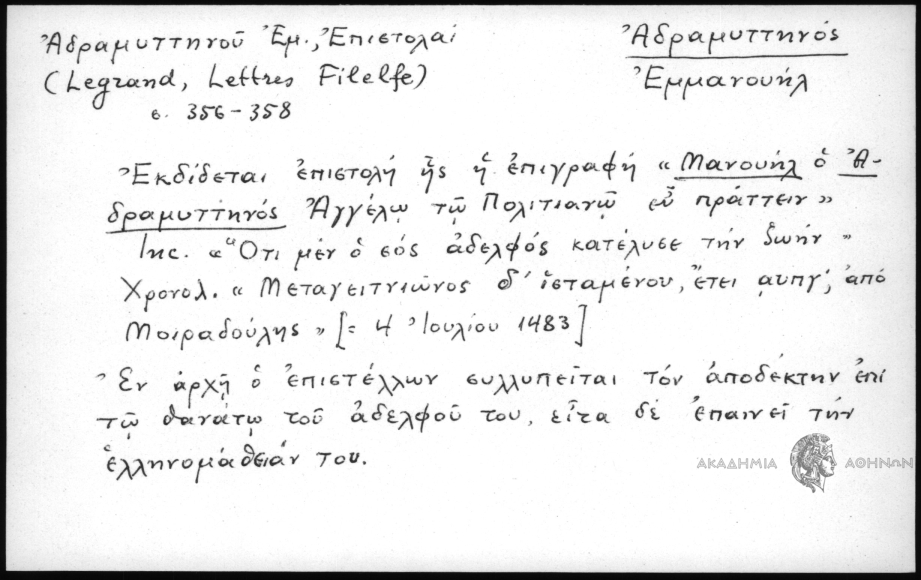 Ἀδραμυττηνοῦ Ἐμ., Ἐπιστολαί
(Legrand, Lettres Filelfe)
σ. 356-358
Ἀδραμυττηνός
Ἐμμανουήλ
Ἐκδίδεται ἐπιστολή ἧς ἡ ἐπιγραφή «Μανουήλ ὁ Ἀ-
δραμυττηνός Ἀγγέλῳ τῷ Πολιτιανῷ εὖ πράττειν»
Inc. «Ὅτι μέν ὁ σός ἀδελφός κατέλυσε τήν ζωήν»
Χρονολ. «Μεταγειτνιῶνος δ' ἱσταμένου, ἔτει ͵αυπγ', ἀπό
Μοιραδούλης» [= 4 Ἰουλίου 1483]
Ἐν ἀρχῇ ὁ ἐπιστέλλων συλλυπεῖται τόν ἀποδέκτην ἐπί
τῷ θανάτῳ τοῦ ἀδελφοῦ του, εἶτα δέ ἐπαινεῖ τήν
ἑλληνομάθειάν του.
ΑΚΑΔΗΜΙΑ ΑΘΗΝΩΝ